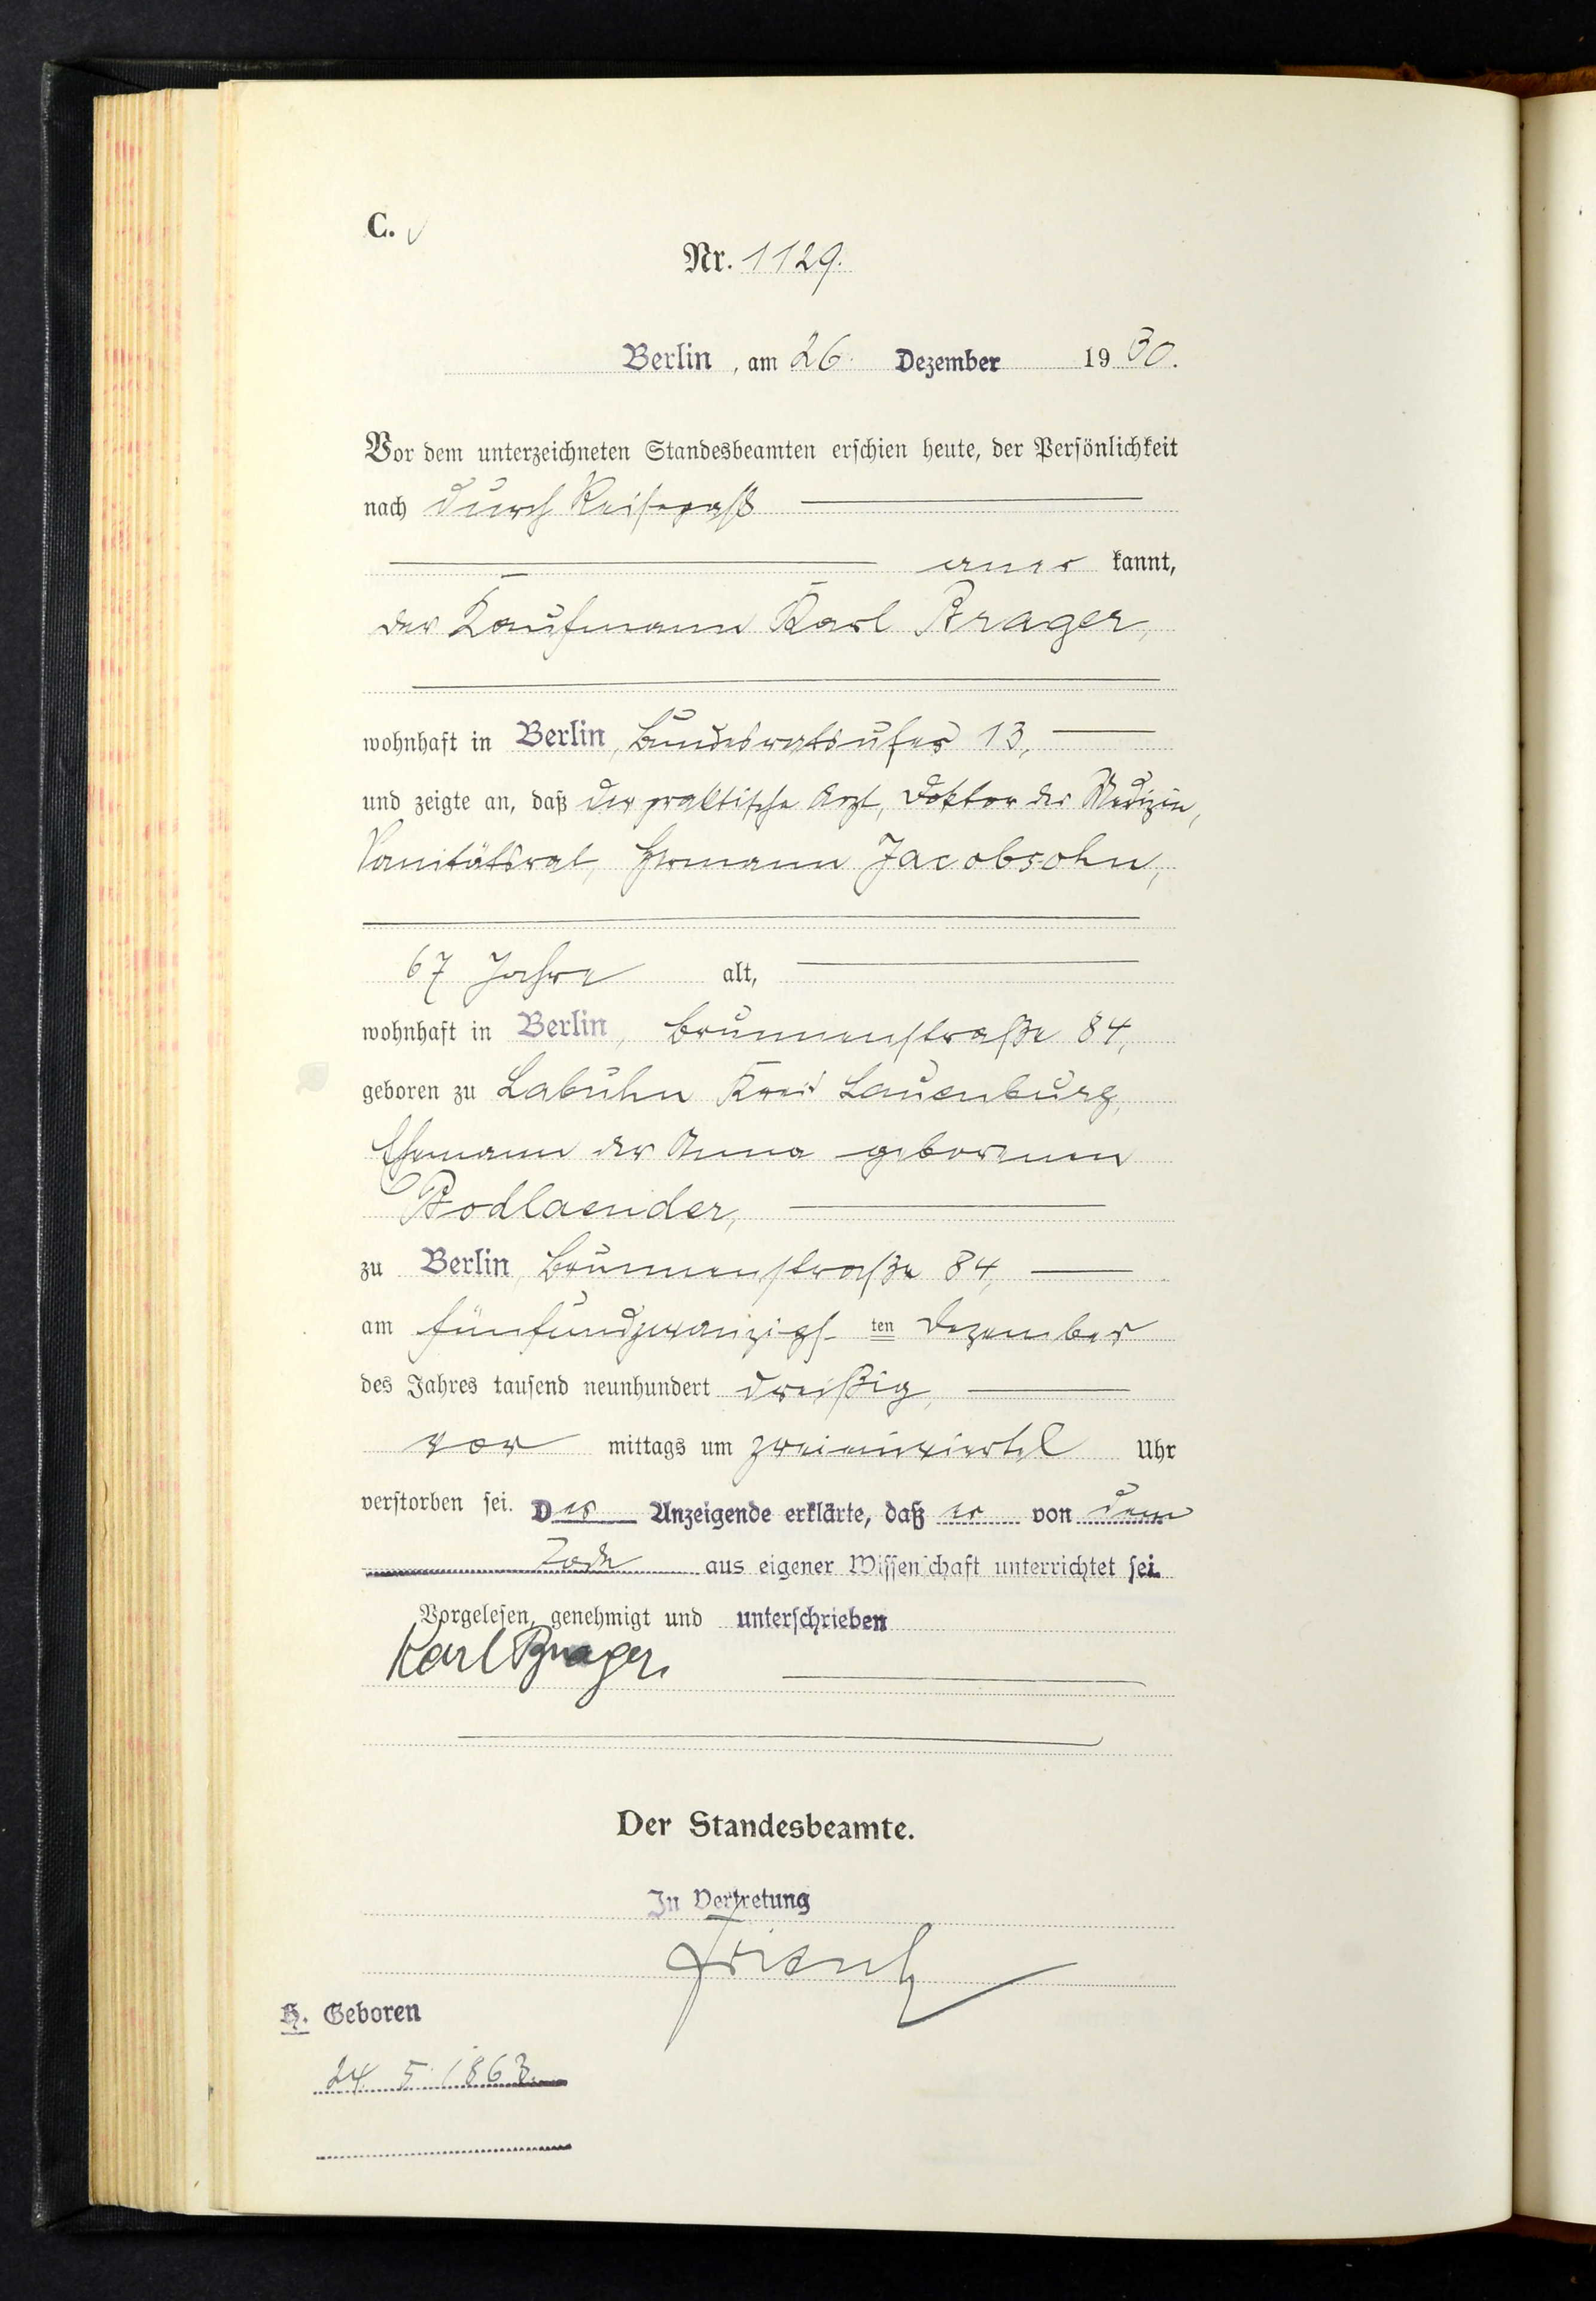 C.
Nr. 1129.
Berlin, am 26. Dezember 1930.
Vor dem unterzeichneten Standesbeamten erschien heute, der Persönlichkeit
nach durch Reisepaß
aner kannt,
der Kaufmann Karl Prager,
wohnhaft in Berlin, Bundesratsufer 13,
und zeigte an, daß der praktische Arzt, Doktor der Medizin,
Sanitätsrat, Hermann Jacobsohn,
67 Jahre alt,
wohnhaft in Berlin, Brunnenstraße 84,
geboren zu Labuhn Kreis Lauenburg,
Ehemann der Anna geborenen
Bodlaender,
zu Berlin, Brunnenstraße 84,
am fünfundzwanzigsten Dezember
des Jahres tausend neunhundert dreißig,
vor mittags um zweieinviertel Uhr
verstorben sei. Der Anzeigende erklärte, daß er von dem
Tode aus eigener Wissenschaft unterrichtet sei.
Vorgelesen, genehmigt und unterschrieben
Karl Prager.
Der Standesbeamte.
In Vertretung
H. Geboren
24. 5. 1863.